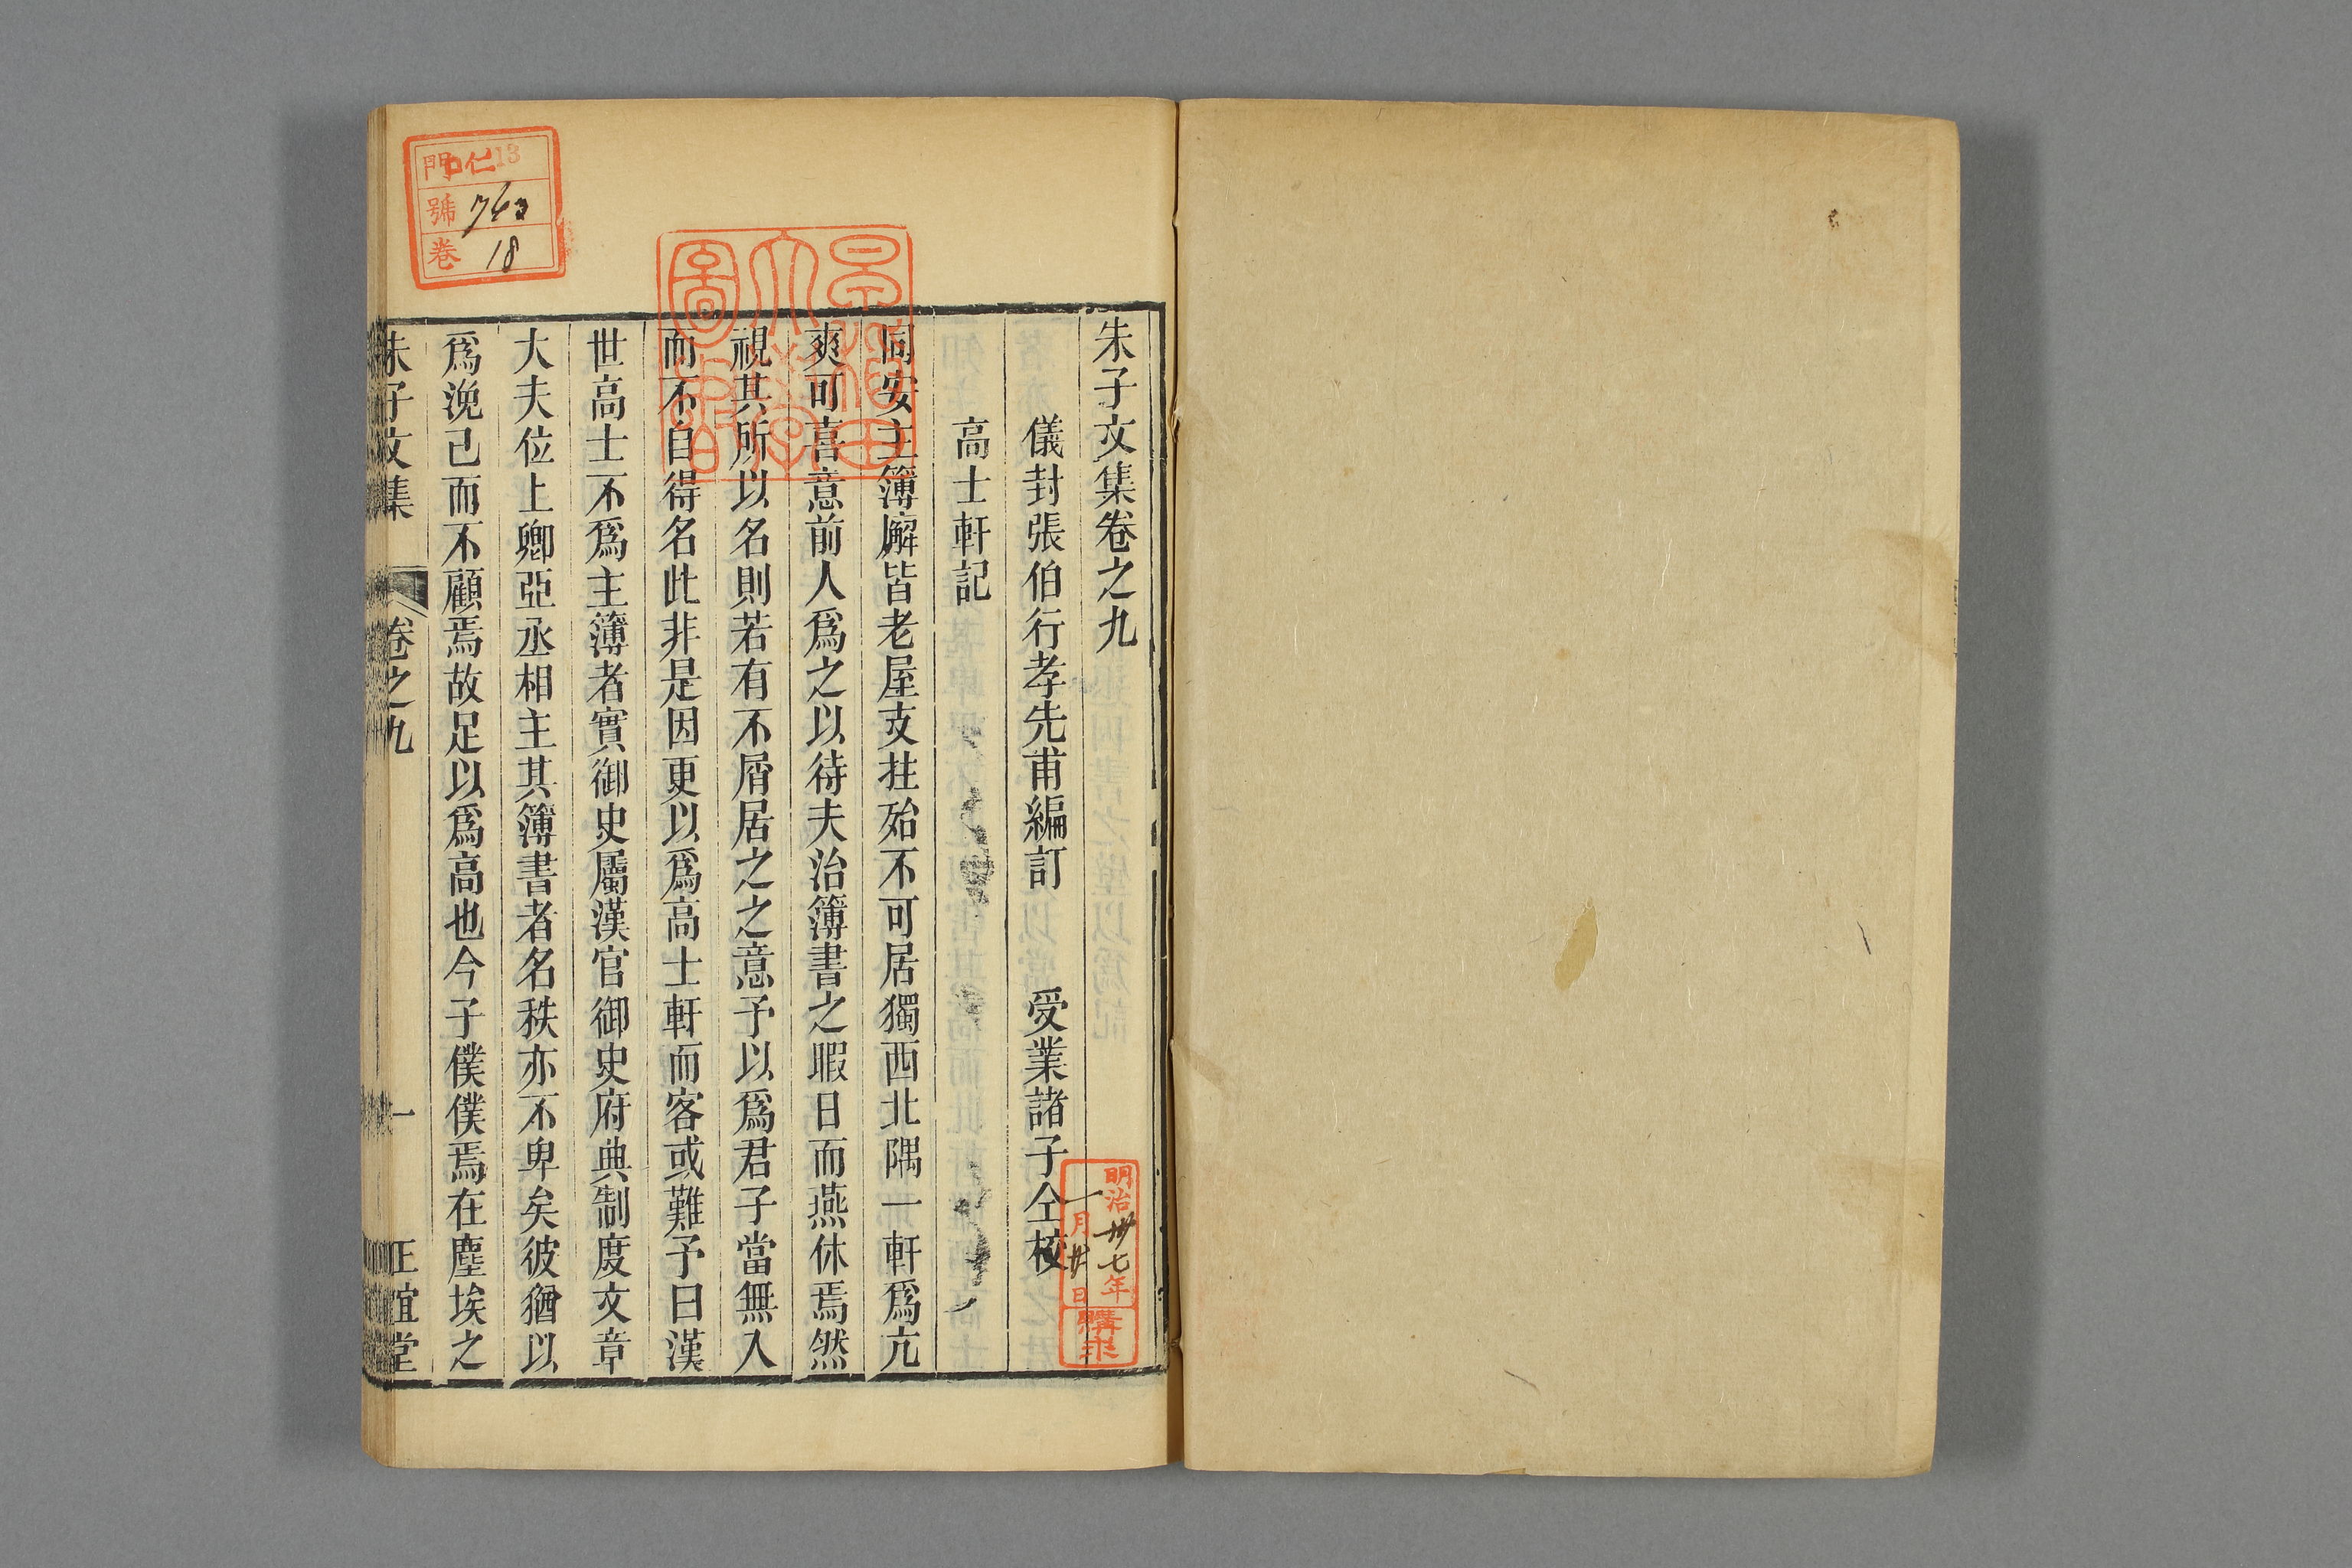 朱子文集卷之九
儀封張伯行孝先甫編訂 受業諸子仝校
高士軒記
同安主簿廨皆老屋支拄殆不可居獨西北隅一軒爲亢
爽可喜意前人爲之以待夫治簿書之暇日而燕休焉然
視其所以名則若有不屑居之之意予以爲君子當無入
而不自得名此非是因更以爲高士軒而客或難予曰漢
世高士不爲主簿者實御史屬漢官御史府典制度文章
大夫位上卿亞丞相主其簿書者名秩亦不卑矣彼猶以
爲浼己而不顧焉故足以爲高也今子僕僕焉在塵埃之
朱子文集 卷之九 一 正誼堂
明治卅七年
一月廿日
購求
早稲田
大學
圖書館
門 仁13
號 743
卷 18